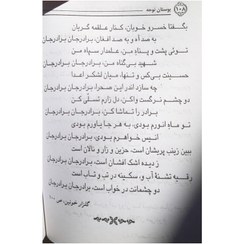 بوستان نوحه
۱۰۸
بگفتا خسرو خوبان، کنار علقمه گریان
به صد آه و به صد افغان، برادرجان برادرجان
توئی پشت و پناه من، علمدار سپاه من
شهید بی‌گناه من، برادرجان برادرجان
حسینت بی‌کس و تنها، میان لشکر اعدا
چه سازد اندر این صحرا، برادرجان برادرجان
دو چشم نرگست وا کن، دل زارم تسلّی کن
برادرجان برادرجان
تو ماه انورم بودی، به هر جا یاورم بودی
انیس خواهرم بودی، برادرجان برادرجان
ببین زینب پریشان است، حزین و زار و نالان است
ز دیده اشک افشان است، برادرجان برادرجان
رقیه تشنهٔ آب و، سکینه در تب و تاب است
دو چشمانت در خواب است، برادرجان برادرجان
گلزار خونین، ص